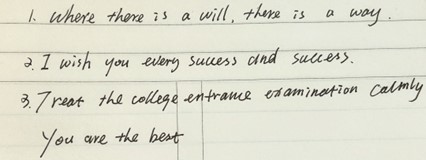 1. Where there is a will, there is a way.
2. I wish you every success and success.
3. Treat the college entrance examination calmly
You are the best